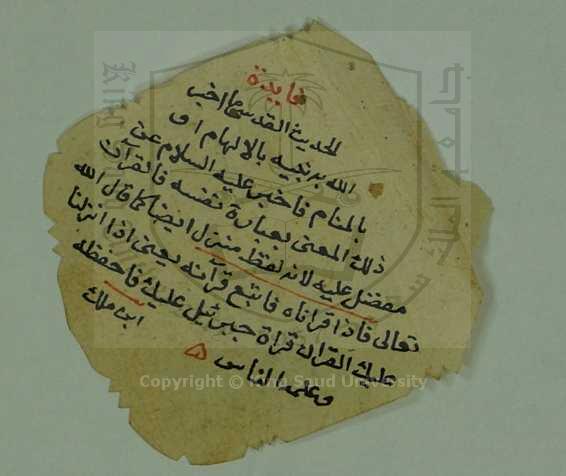 فايدة
الحديث القدسي ما اخبر
الله به نبيه بالالهام او
بالمنام فاخبر عليه السلام عن
ذلك المعنى بعبارة نفسه فالقرآن
مفضل عليه لان لفظه منزل ايضا كما قال الله
تعالى فاذا قراناه فاتبع قرانه يعنى اذا انزلنا
عليك القران قراة جبرئيل عليك فاحفظه
وعلمه الناس ابن ملك
Copyright © King Saud University